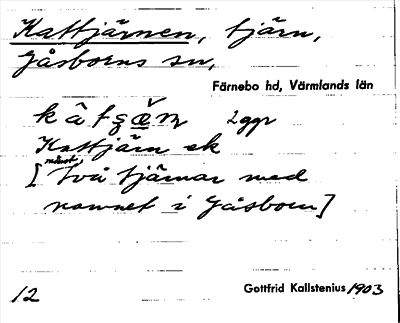 Kattjärnen, tjärn,
Gåsborns sn,
Färnebo hd, Värmlands län
2 ggr
Kattjärn ek
[minst två tjärnar med
namnet i Gåsborn]
12
Gottfrid Kallstenius 1903